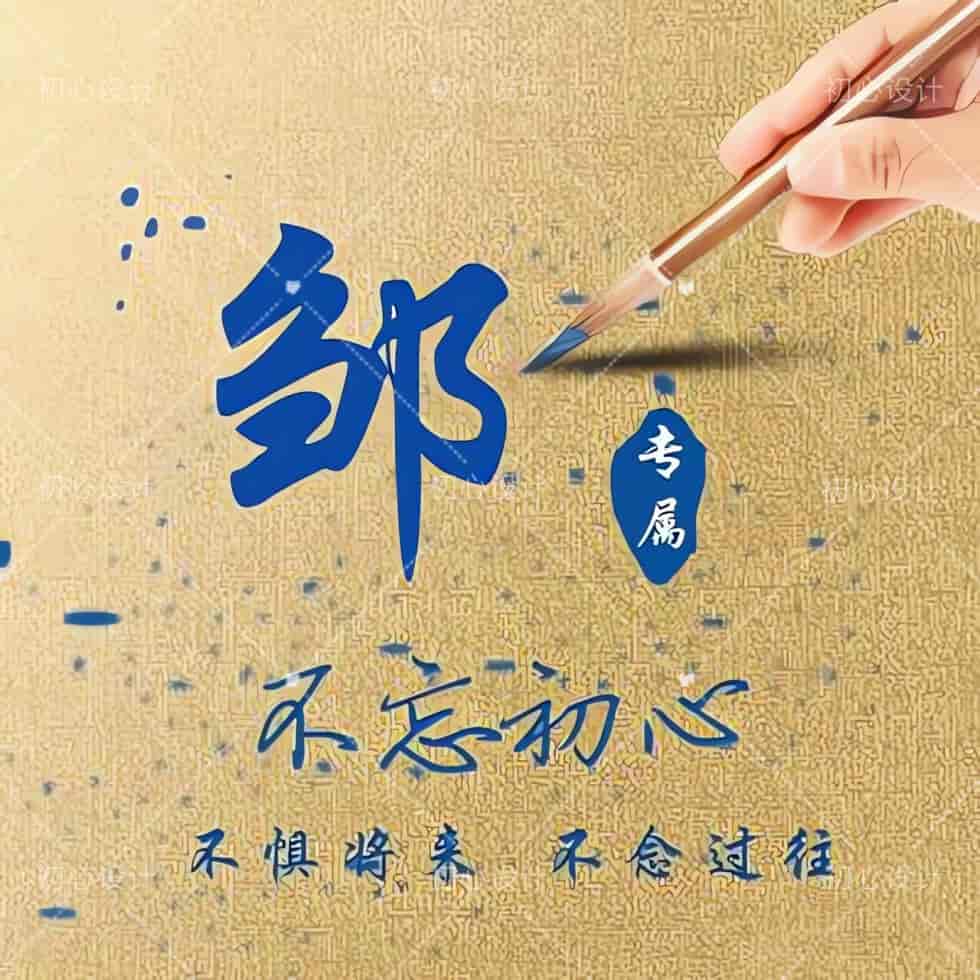 初心设计 初心设计 初心设计
邹
专属
初心设计 初心设计 初心设计
不忘初心
不惧将来 不念过往
初心设计 初心设计 初心设计